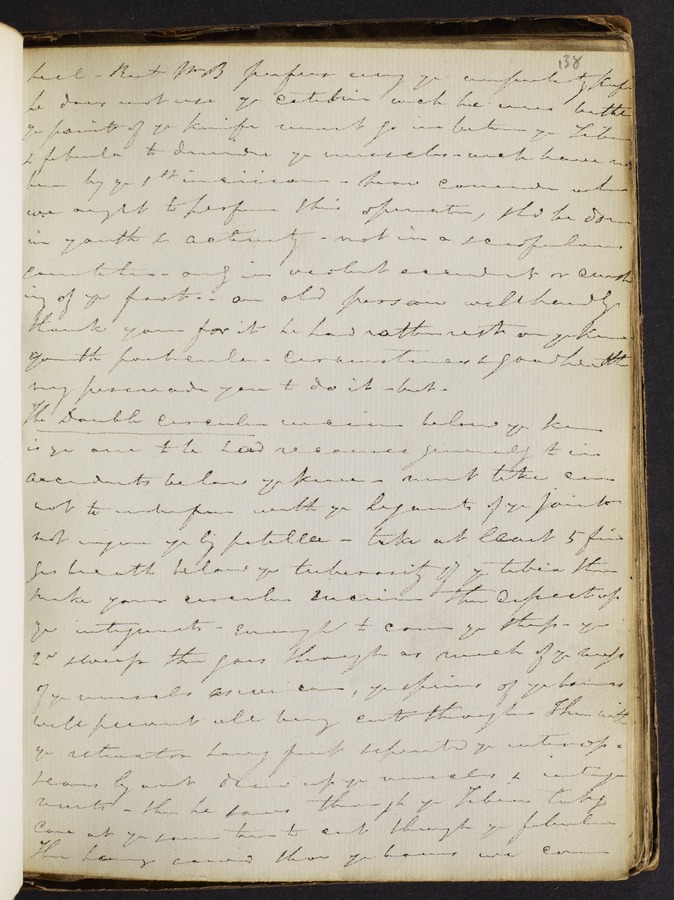 138
heel - But Mr B prefers using ye
he does not use ye catlin until he comes
ye points of ye knife must go in between ye Tibia
& fibula to divide ye muscles which have not
been by ye 1st incision - now consider when
we ought to perform this operation, shd be done
in youth & activity - not in a scrofulous
constitution - only in violent accident or crush
ing of ye foot - an old person will hardly
thank you for it he had rather rest on ye knee
youth particular circumstances & good health
may persuade you to do it - but -
The Double circular incision below ye knee
is ye one to be had recourse generally to in
accidents below ye knee - must take care
not to interfere with ye ligaments of ye joint
not injure ye lig patellae - take at least 5 fin
gers breadth below ye tuberosity of ye tibia then
make your circular incision then dissect up
ye integuments - enough to cover ye stump - ye
2nd sweep then goes through as much of ye
of ye muscles as we can, ye spines of ye bones
will prevent all being cut through - Then with
ye retractor having first separated ye inteross
eous ligamt draw up ye muscles & integu
ments - then he saws through ye Tibia taking
care at ye same time to cut through ye fibula
Then having sawed thro ye bones we come